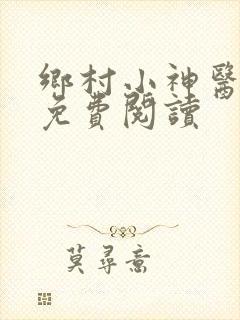 鄉村小神醫
免費閱讀
莫尋意